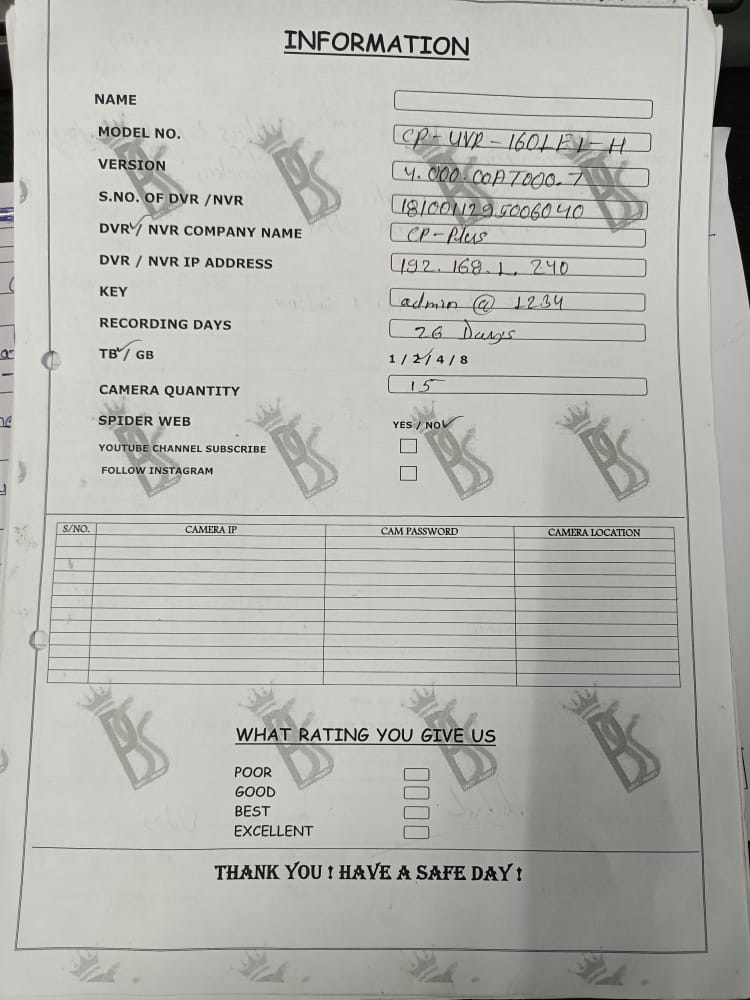 INFORMATION
NAME
MODEL NO. CP-UVR-1601E1-H
VERSION 4.000.00A7000.7
S.NO. OF DVR /NVR 181001295006040
DVR✓/ NVR COMPANY NAME CP-Plus
DVR / NVR IP ADDRESS 192.168.1.240
KEY admin@1234
RECORDING DAYS 26 Days
TB✓/ GB 1 / 2✓/ 4 / 8
CAMERA QUANTITY 15
SPIDER WEB YES / NO✓
YOUTUBE CHANNEL SUBSCRIBE
FOLLOW INSTAGRAM
S/NO. CAMERA IP CAM PASSWORD CAMERA LOCATION
WHAT RATING YOU GIVE US
POOR
GOOD
BEST
EXCELLENT
THANK YOU ! HAVE A SAFE DAY !